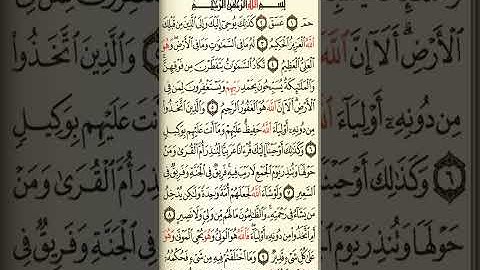 بِسْمِ اللَّهِ الرَّحْمَٰنِ الرَّحِيمِ
حمٓ ١ عٓسٓقٓ ٢ كَذَٰلِكَ يُوحِىٓ إِلَيْكَ وَإِلَى ٱلَّذِينَ مِن قَبْلِكَ
ٱللَّهُ ٱلْعَزِيزُ ٱلْحَكِيمُ ٣ لَهُۥ مَا فِى ٱلسَّمَٰوَٰتِ وَمَا فِى ٱلْأَرْضِ وَهُوَ
ٱلْعَلِىُّ ٱلْعَظِيمُ ٤ تَكَادُ ٱلسَّمَٰوَٰتُ يَتَفَطَّرْنَ مِن فَوْقِهِنَّ
وَٱلْمَلَٰٓئِكَةُ يُسَبِّحُونَ بِحَمْدِ رَبِّهِمْ وَيَسْتَغْفِرُونَ لِمَن فِى
ٱلْأَرْضِ أَلَآ إِنَّ ٱللَّهَ هُوَ ٱلْغَفُورُ ٱلرَّحِيمُ ٥ وَٱلَّذِينَ ٱتَّخَذُوا۟
مِن دُونِهِۦٓ أَوْلِيَآءَ ٱللَّهُ حَفِيظٌ عَلَيْهِمْ وَمَآ أَنتَ عَلَيْهِم بِوَكِيلٍ
٦ وَكَذَٰلِكَ أَوْحَيْنَآ إِلَيْكَ قُرْءَانًا عَرَبِيًّا لِّتُنذِرَ أُمَّ ٱلْقُرَىٰ وَمَنْ
حَوْلَهَا وَتُنذِرَ يَوْمَ ٱلْجَمْعِ لَا رَيْبَ فِيهِ فَرِيقٌ فِى ٱلْجَنَّةِ وَفَرِيقٌ فِى
ٱلسَّعِيرِ ٧ وَلَوْ شَآءَ ٱللَّهُ لَجَعَلَهُمْ أُمَّةً وَٰحِدَةً وَلَٰكِن يُدْخِلُ
مَن يَشَآءُ فِى رَحْمَتِهِۦ وَٱلظَّٰلِمُونَ مَا لَهُم مِّن وَلِىٍّ وَلَا نَصِيرٍ ٨
أَمِ ٱتَّخَذُوا۟ مِن دُونِهِۦٓ أَوْلِيَآءَ فَٱللَّهُ هُوَ ٱلْوَلِىُّ وَهُوَ يُحْىِ ٱلْمَوْتَىٰ وَهُوَ
عَلَىٰ كُلِّ شَىْءٍ قَدِيرٌ ٩ وَمَا ٱخْتَلَفْتُمْ فِيهِ مِن شَىْءٍ فَحُكْمُهُۥٓ
ٱلْأَرْضِ أَلَآ إِنَّ
وَٱلَّذِينَ ٱتَّخَذُوا۟
مِن دُونِهِۦٓ أَوْلِيَآءَ
عَلَيْهِم بِوَكِيلٍ
٦ وَكَذَٰلِكَ
أُمَّ ٱلْقُرَىٰ وَمَنْ
حَوْلَهَا وَتُنذِرَ يَوْمَ
فِى ٱلْجَنَّةِ وَفَرِيقٌ فِى